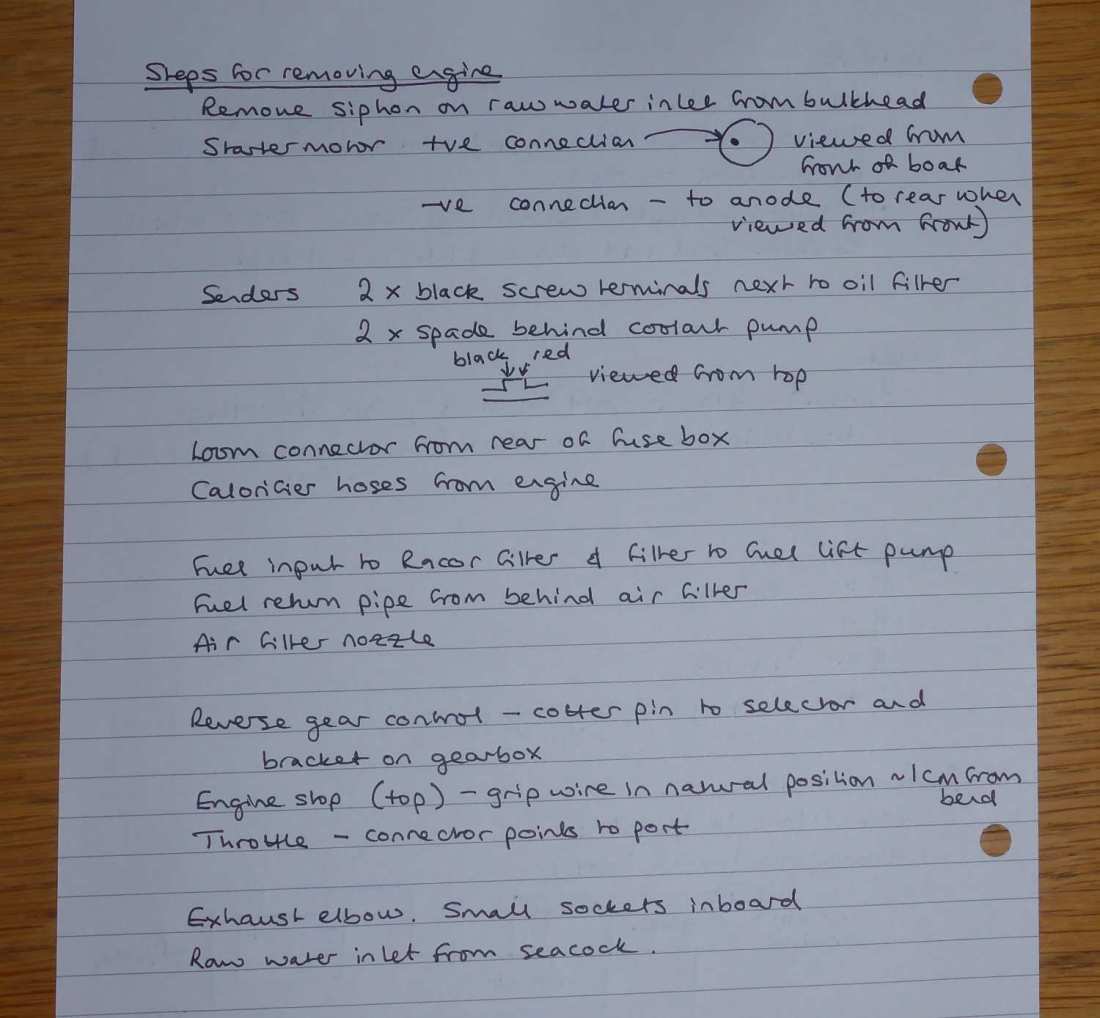 Steps for removing engine
Remove siphon on raw water inlet from bulkhead
Starter motor +ve connection viewed from
front of boat
-ve connection - to anode (to rear when
viewed from front)
Senders 2 x black screw terminals next to oil filter
2 x spade behind coolant pump
black red
viewed from top
Loom connector from rear of fuse box
Calorifier hoses from engine
Fuel input to Racor filter & filter to fuel lift pump
Fuel return pipe from behind air filter
Air filter nozzle
Reverse gear control - cotter pin to selector and
bracket on gearbox
Engine stop (top) - grip wire in natural position ~1cm from
bend
Throttle - connector points to port
Exhaust elbow. Small sockets inboard
Raw water inlet from seacock.